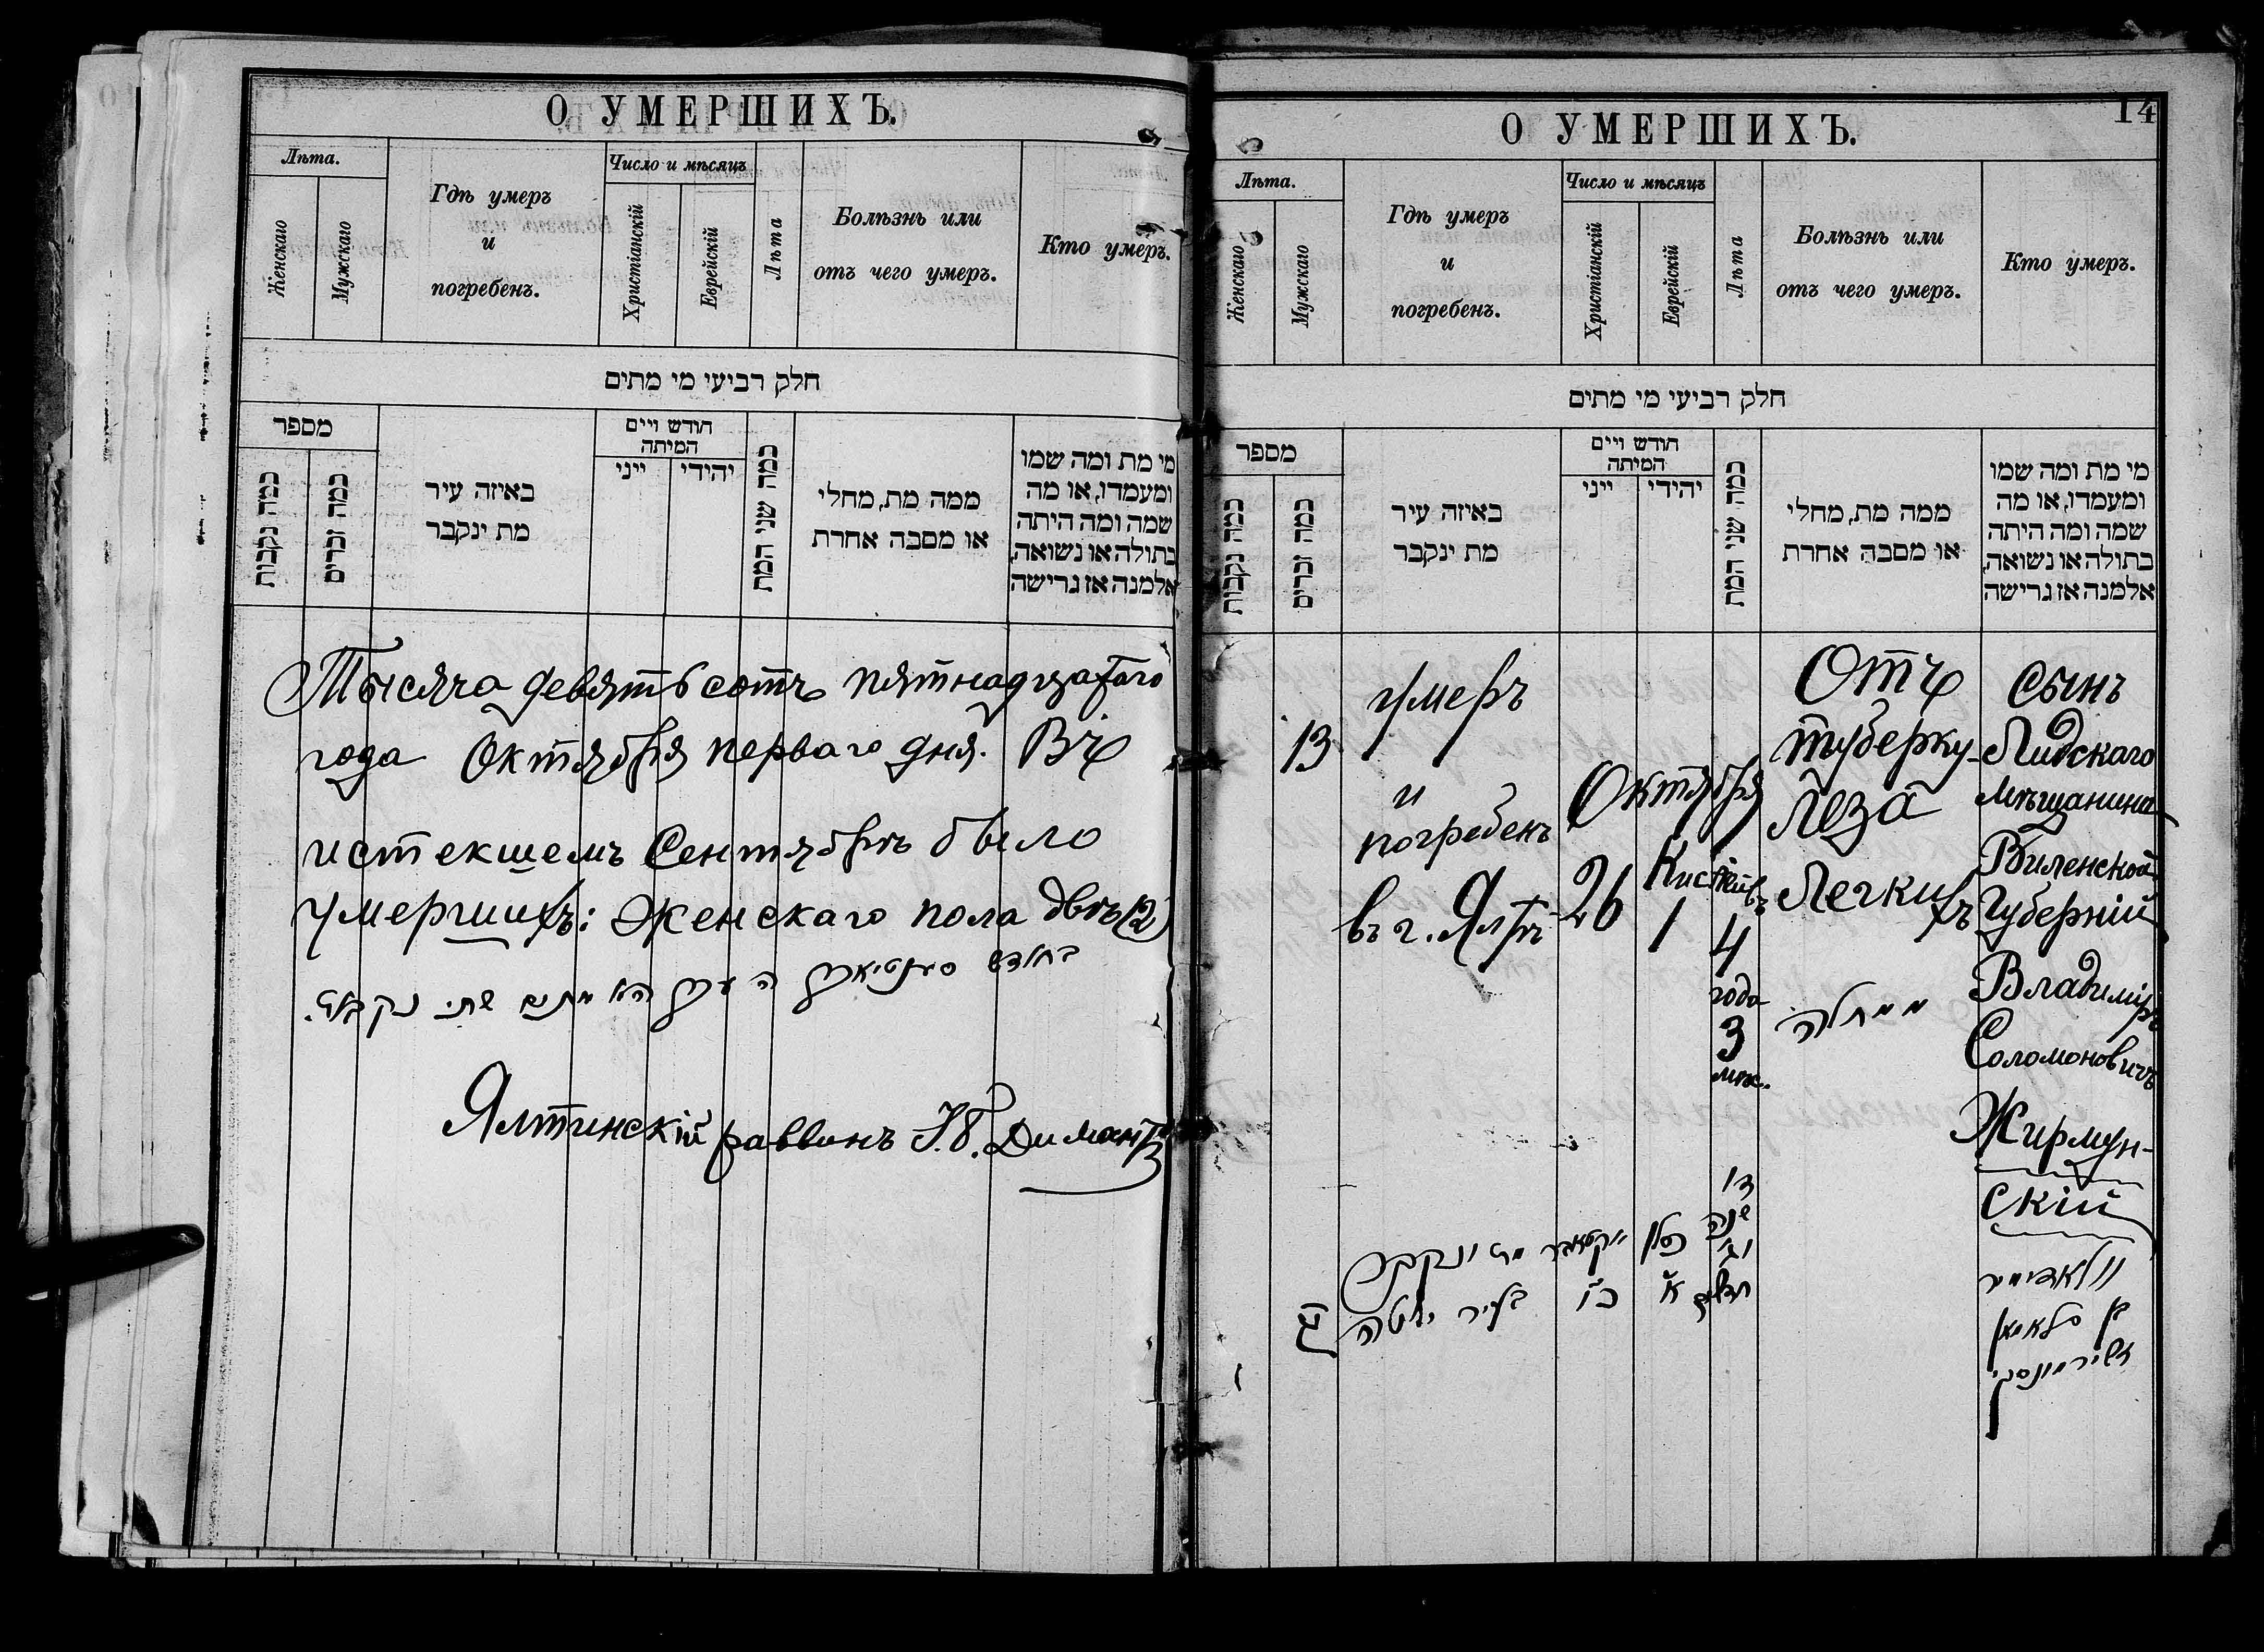 О УМЕРШИХЪ.
Лѣта.
Женскаго
Мужскаго
Гдѣ умеръ
и
погребенъ.
Число и мѣсяцъ
Христіанскій
Еврейскій
Лѣта
Болѣзнь или
отъ чего умеръ.
Кто умеръ.
חלק רביעי מי מתים
מספר
כמה נקבות
כמה זכרים
באיזה עיר
מת ינקבר
חודש ויים
המיתה
ייני
יהודי
כמה שני המת
ממה מת, מחלי
או מסבה אחרת
מי מת ומה שמו
ומעמדו, או מה
שמה ומה היתה
בתולה או נשואה,
אלמנה אז גרישה
Тысяча девятьсотъ пятнадцатаго
года Октября перваго дня. Въ
истекшемъ Сентябрѣ было
умершихъ: Женскаго пола двѣ (2)
בחודש
שתי נקבות.
Ялтинскій раввинъ Я. Б. Димантъ
14
О УМЕРШИХЪ.
Лѣта.
Женскаго
Мужскаго
Гдѣ умеръ
и
погребенъ.
Число и мѣсяцъ
Христіанскій
Еврейскій
Лѣта
Болѣзнь или
отъ чего умеръ.
Кто умеръ.
חלק רביעי מי מתים
מספר
כמה נקבות
כמה זכרים
באיזה עיר
מת ינקבר
חודש ויים
המיתה
ייני
יהודי
כמה שני המת
ממה מת, מחלי
או מסבה אחרת
מי מת ומה שמו
ומעמדו, או מה
שמה ומה היתה
בתולה או נשואה,
אלמנה אז גרישה
13
умеръ
и
погребенъ
въ г. Ялтѣ
Октября
26
Кислевъ
1
4
года
3
мѣс.
Отъ
туберку-
леза
Легкихъ
ממחלה
Сынъ
Лидскаго
мѣщанина
Виленской
Губерніи
Владиміръ
Соломоновичъ
Жирмун-
скій
יג
מת ונקבר
בעיר יאלטה
אקטאבר
כו
כסלו
א
ד׳
שנה
וג׳
חדשים
וולאדימיר
בן סלאמאן
זשירמונסקי